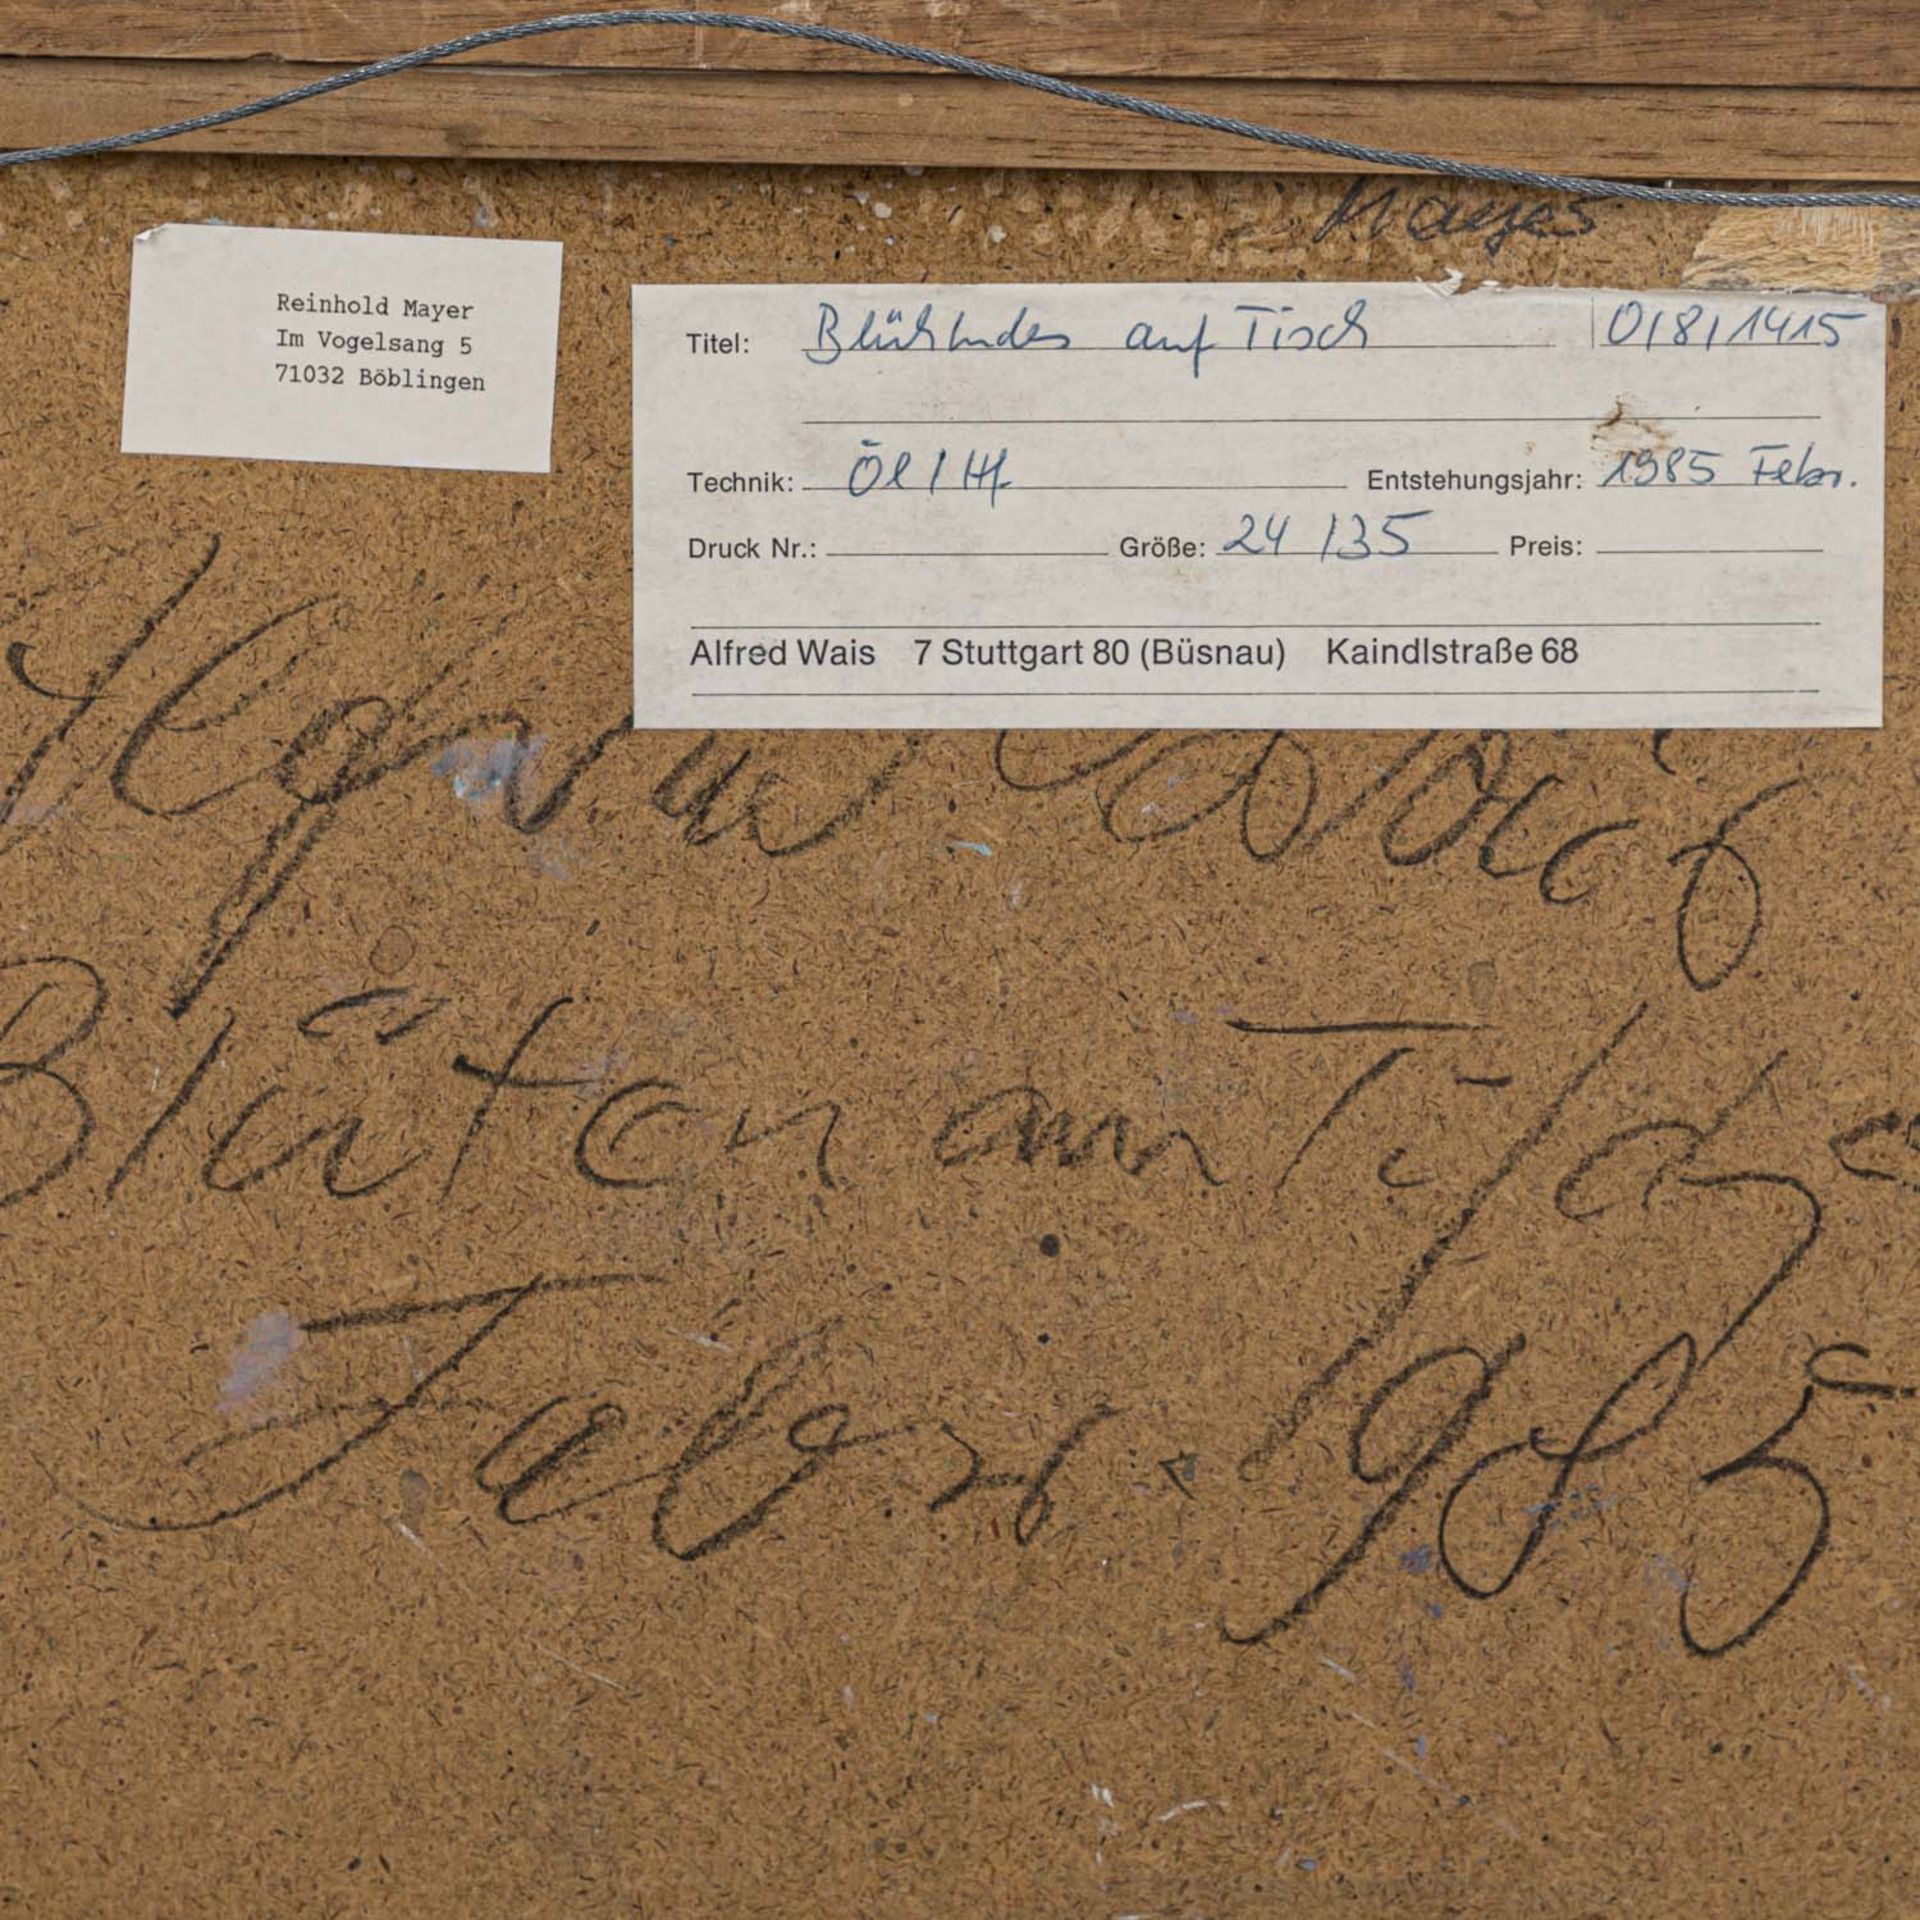 Mayer
Reinhold Mayer
Im Vogelsang 5
71032 Böblingen
Titel: Blühendes auf Tisch O/8/1415
Technik: Öl / Hf. Entstehungsjahr: 1985 Febr.
Druck Nr.: Größe: 24/35 Preis:
Alfred Wais 7 Stuttgart 80 (Büsnau) Kaindlstraße 68
Blüten am
Febr. 1985